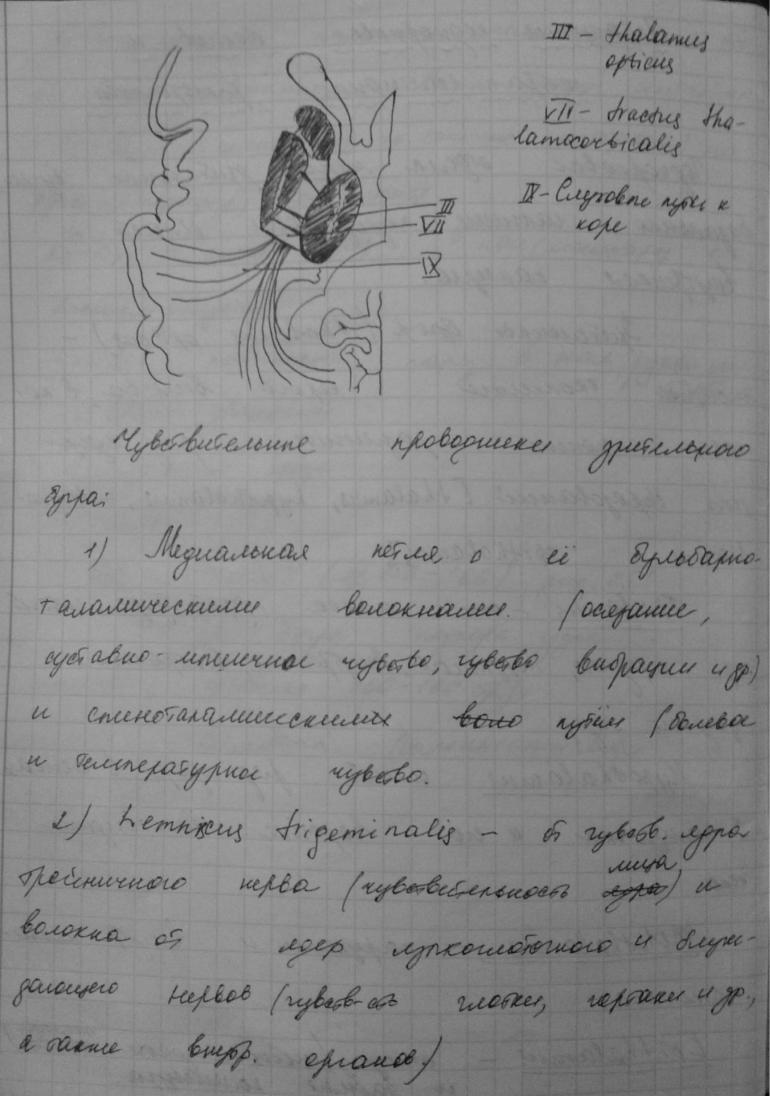 III – thalamus
opticus
VII – tractus tha-
lamocorticalis
IX – Слуховые пути к
коре
III
VII
IX
Чувствительные проводники зрительного
бугра:
1) Медиальная петля с её бульбарно-
таламическими волокнами. (осязание,
суставно-мышечное чувство, чувство вибрации и др)
и спиноталамическими воло путём (болевое
и температурное чувство.
2) Lemniscus trigeminalis – от чувств. ядра
тройничного нерва (чувствительность лица) и
волокна от ядер языкоглоточного и блуж-
дающего нервов (чувств-сть глотки, гортани и др.,
а также внутр. органов)